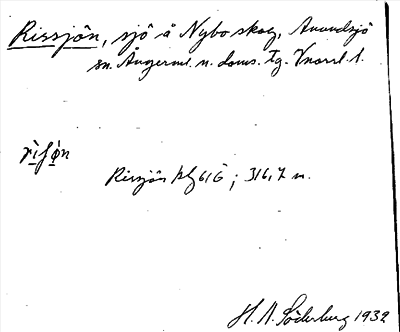 Rissjön, sjö å Nybo skog, Anundsjö
sn. Ångerml. n. doms. tg. Vnorrl. l.
Rissjön kbl 616; 316,7 m.
H. A. Söderberg 1932